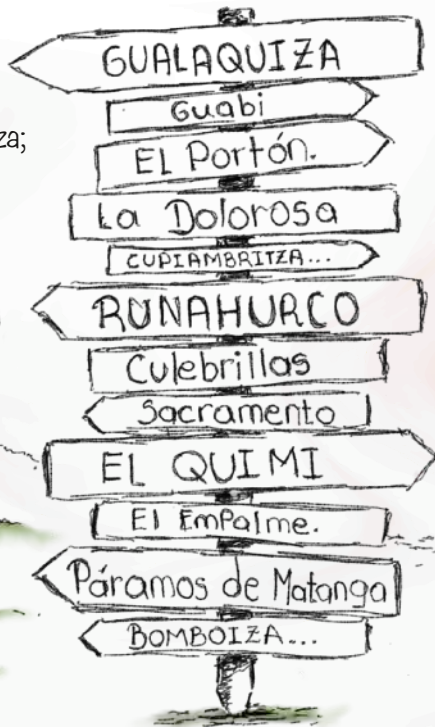 GUALAQUIZA
za;
Guabi
EL Portón.
La Dolorosa
CUPIAMBRITZA...
RUNAHURCO
Culebrillas
Sacramento
EL QUIMI
El Empalme.
Páramos de Matanga
BOMBOIZA...